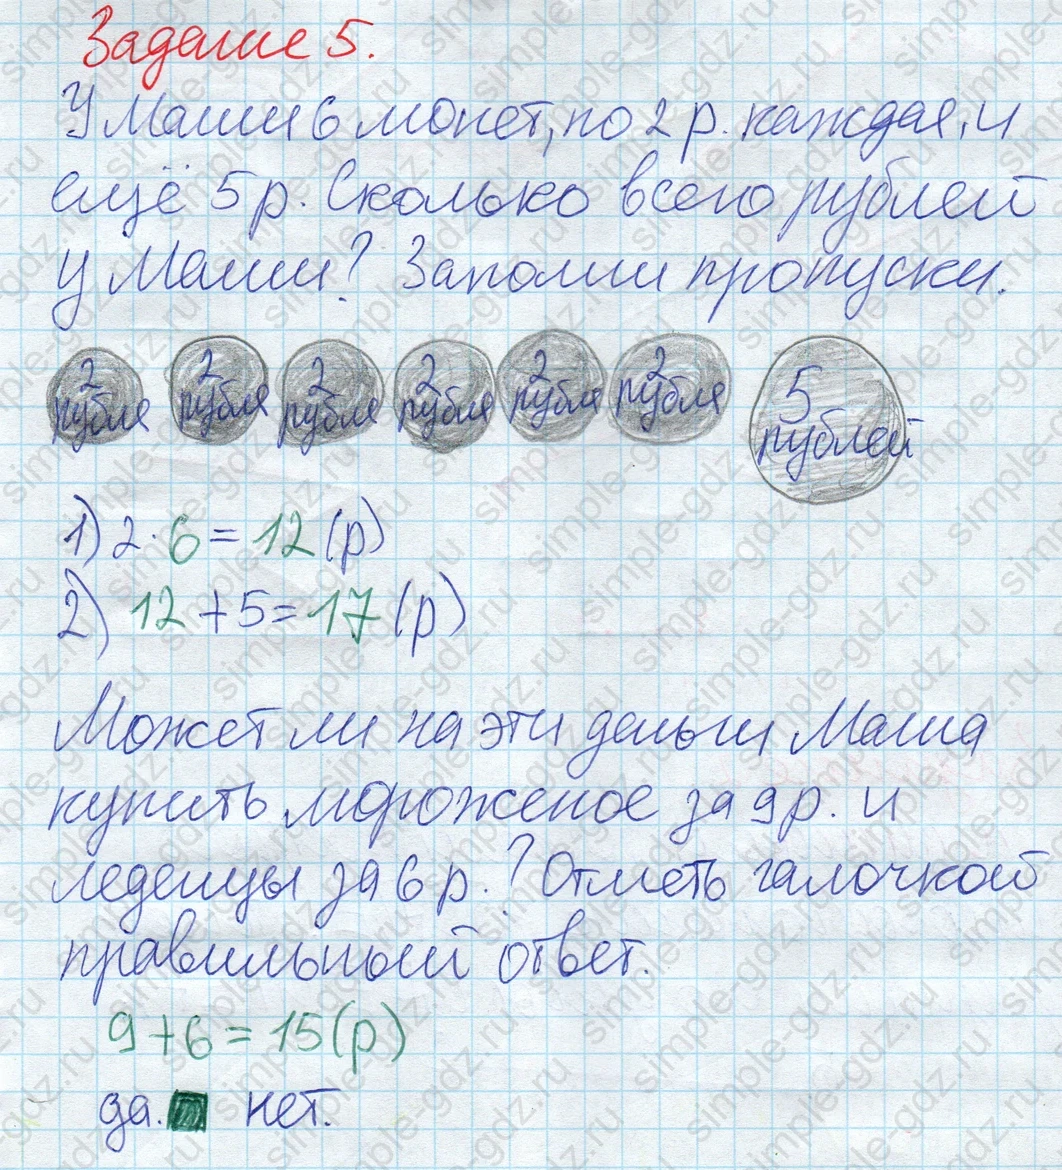 Задание 5.
У Маши 6 монет, по 2 р. каждая, и
ещё 5 р. Сколько всего рублей
у Маши? Заполни пропуски.
2 рубля 2 рубля 2 рубля 2 рубля 2 рубля 2 рубля 5 рублей
1) 2 · 6 = 12 (р)
2) 12 + 5 = 17 (р)
Может ли на эти деньги Маша
купить мороженое за 9 р. и
леденцы за 6 р.? Отметь галочкой
правильный ответ.
9 + 6 = 15 (р)
да. нет.
simple-gdz.ru